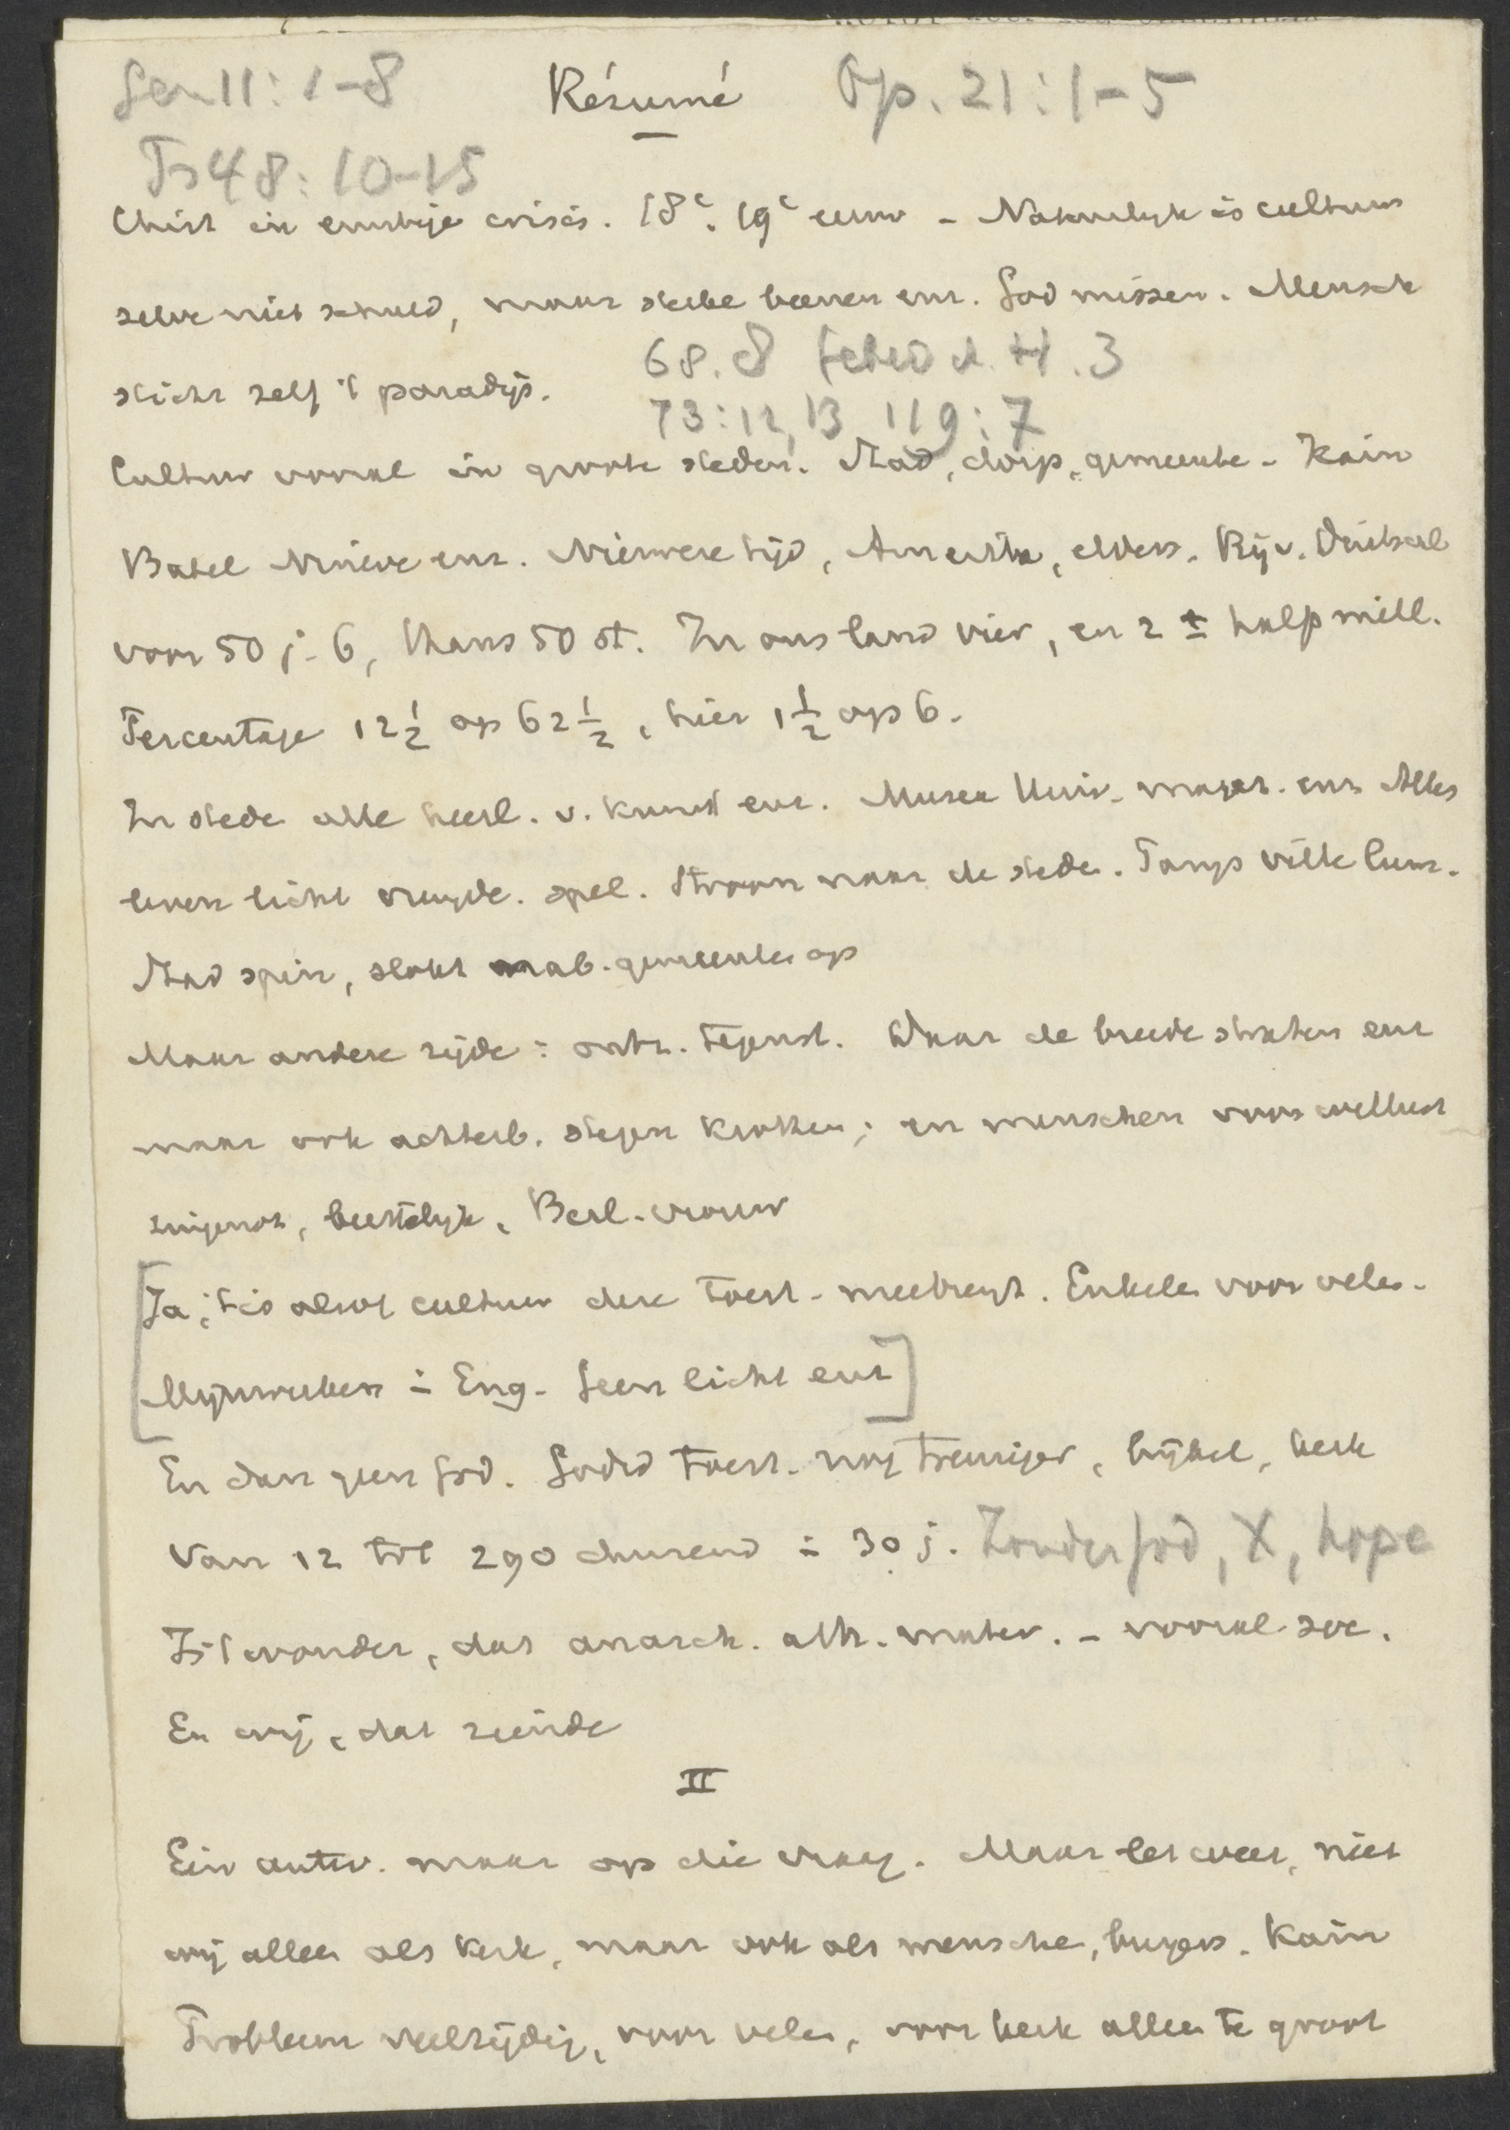 Gen 11: 1-8 Résumé Op. 21: 1-5
Ps 48: 10-15
Christ. in ernstige crisis. 18e. 19e eeuw - Natuurlijk is cultuur
zelve niet schuld, maar enz. God missen. Mensch
sticht zelf 't paradijs. 68.8 Gebed d. H. 3
73: 12, 13 119: 7
Cultuur vooral in groote steden. Stad, dorp, gemeente - Kain
Babel Ninive enz. Nieuwere tijd, Amerika, elders. Rijk v. Duitschl
voor 50 j. 6, thans 50 st. In ons land vier, en 2 ± half mill.
Percentage 12½ op 62½, hier 1½ op 6.
In stede alle heerl. v. kunst enz. Musea Univ. magaz. enz Alles
leven licht vreugde. spel. Stroom naar de stede. Parijs ville lum.
Stad spin, slokt nab. gemeenten op
Maar andere zijde: ontz. tegenst. Waar de breede straten enz
maar ook achterb. stegen krotten; en menschen voor wellust
zingenot, beestelijk, Berl. vrouw
[Ja, 't is alsof cultuur deze toest. meebrengt. Enkelen voor velen.
Mijnwerkers in Eng. Geen licht enz]
En dan geen God. Godsd toest. nog treuriger, bijbel, kerk
Van 12 tot 290 duizend in 30 j. Zonder God, X, hope
Is 't wonder, dat anarch. ath. mater. - vooral soc.
En wij, dat ziende
II
Eén antw. maar op die vraag. Maar let wel, niet
wij alleen als kerk, maar ook als mensche, burgers. Kain
Probleem veelzijdig, voor velen, voor kerk alleen te groot